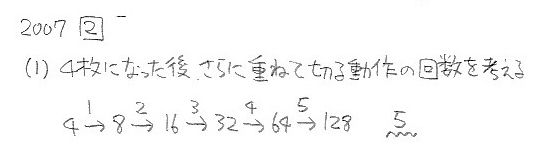 2007 [2]
(1) 4枚になった後、さらに重ねて切る動作の回数を考える
1 2 3 4 5
4→8→16→32→64→128 5